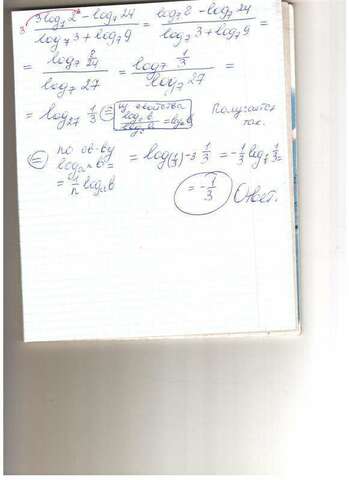 3 (3log₇2 - log₇24)/(log₇3 + log₇9) = (log₇8 - log₇24)/(log₇3 + log₇9) =
= (log₇ 8/24)/(log₇27) = (log₇ 1/3)/(log₇27) =
= log₂₇ 1/3 = из свойства Получается так.
по св-ву logₐⁿ b = = 1/n logₐ b
= log₍₁/₃₎-3 1/3 = -1/3 log 1/3 =
= -1/3 Ответ.